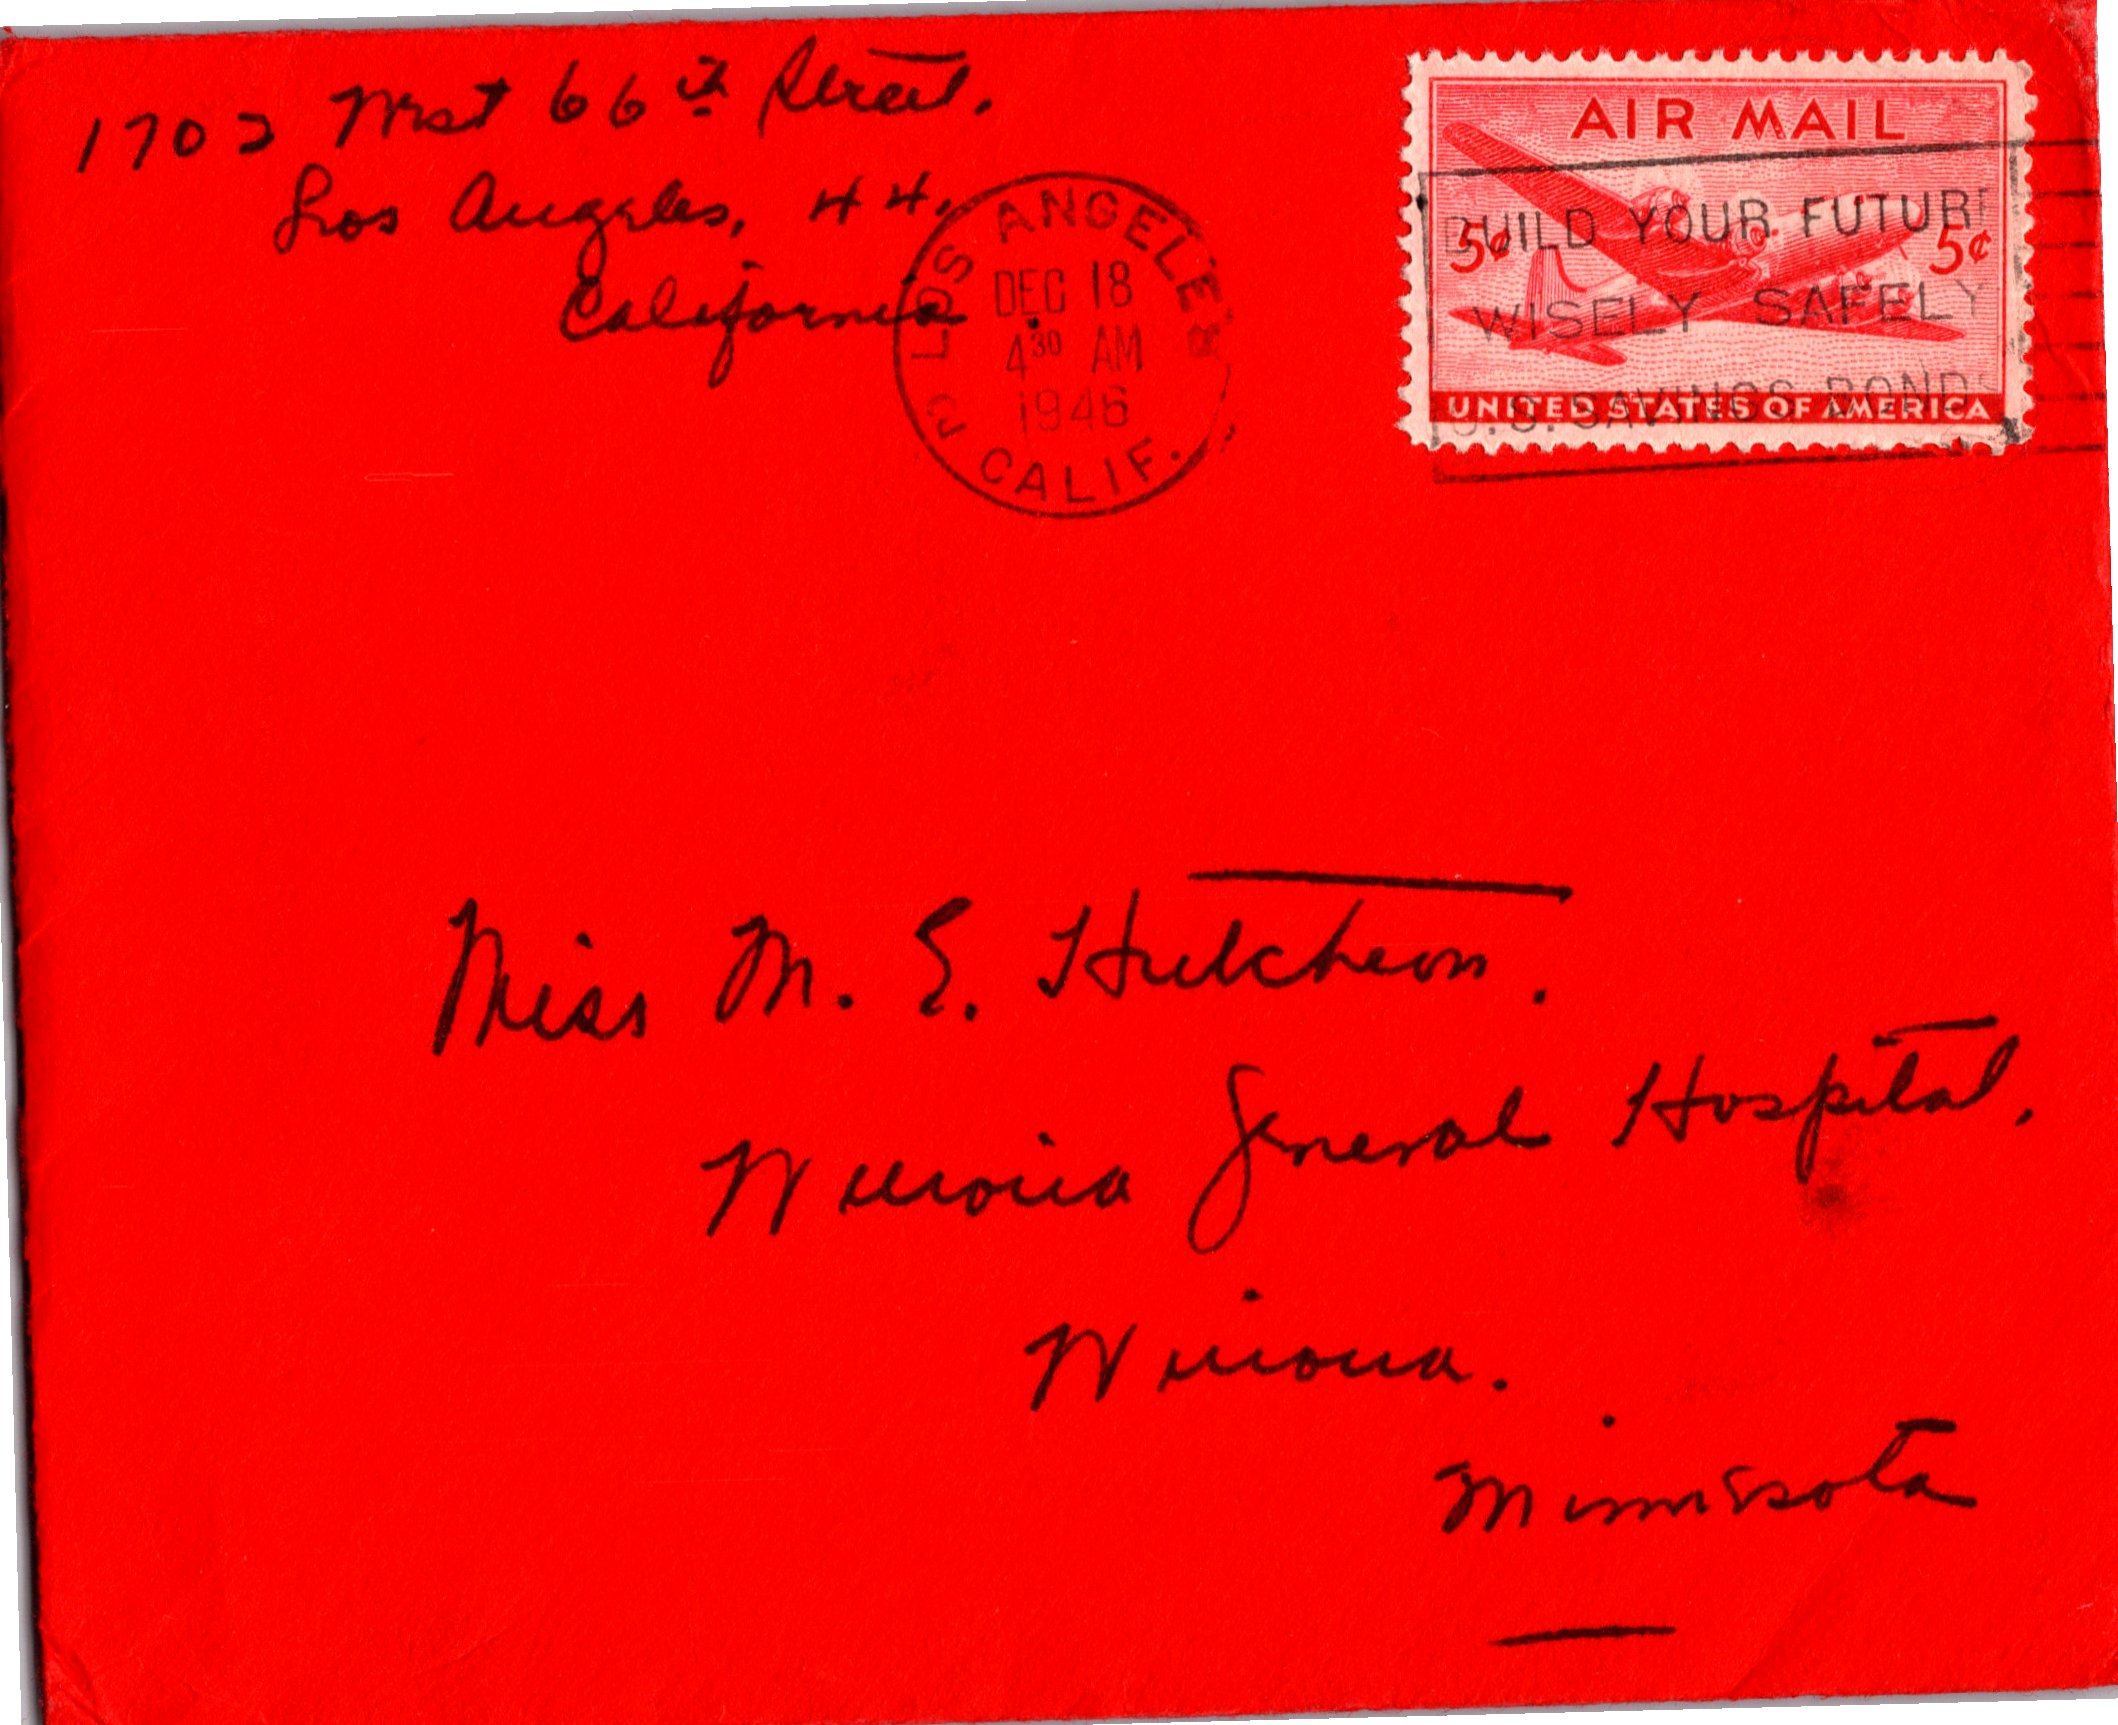 1702 West 66th Street.
Los Angeles, 44,
California
LOS ANGELES
DEC 18
4 30 AM
1946
2 CALIF.
AIR MAIL
5¢ 5¢
UNITED STATES OF AMERICA
BUILD YOUR FUTURE
WISELY SAFELY
U.S. SAVINGS BONDS
Miss M. E. Hutcheon.
Winona General Hospital.
Winona.
Minnesota